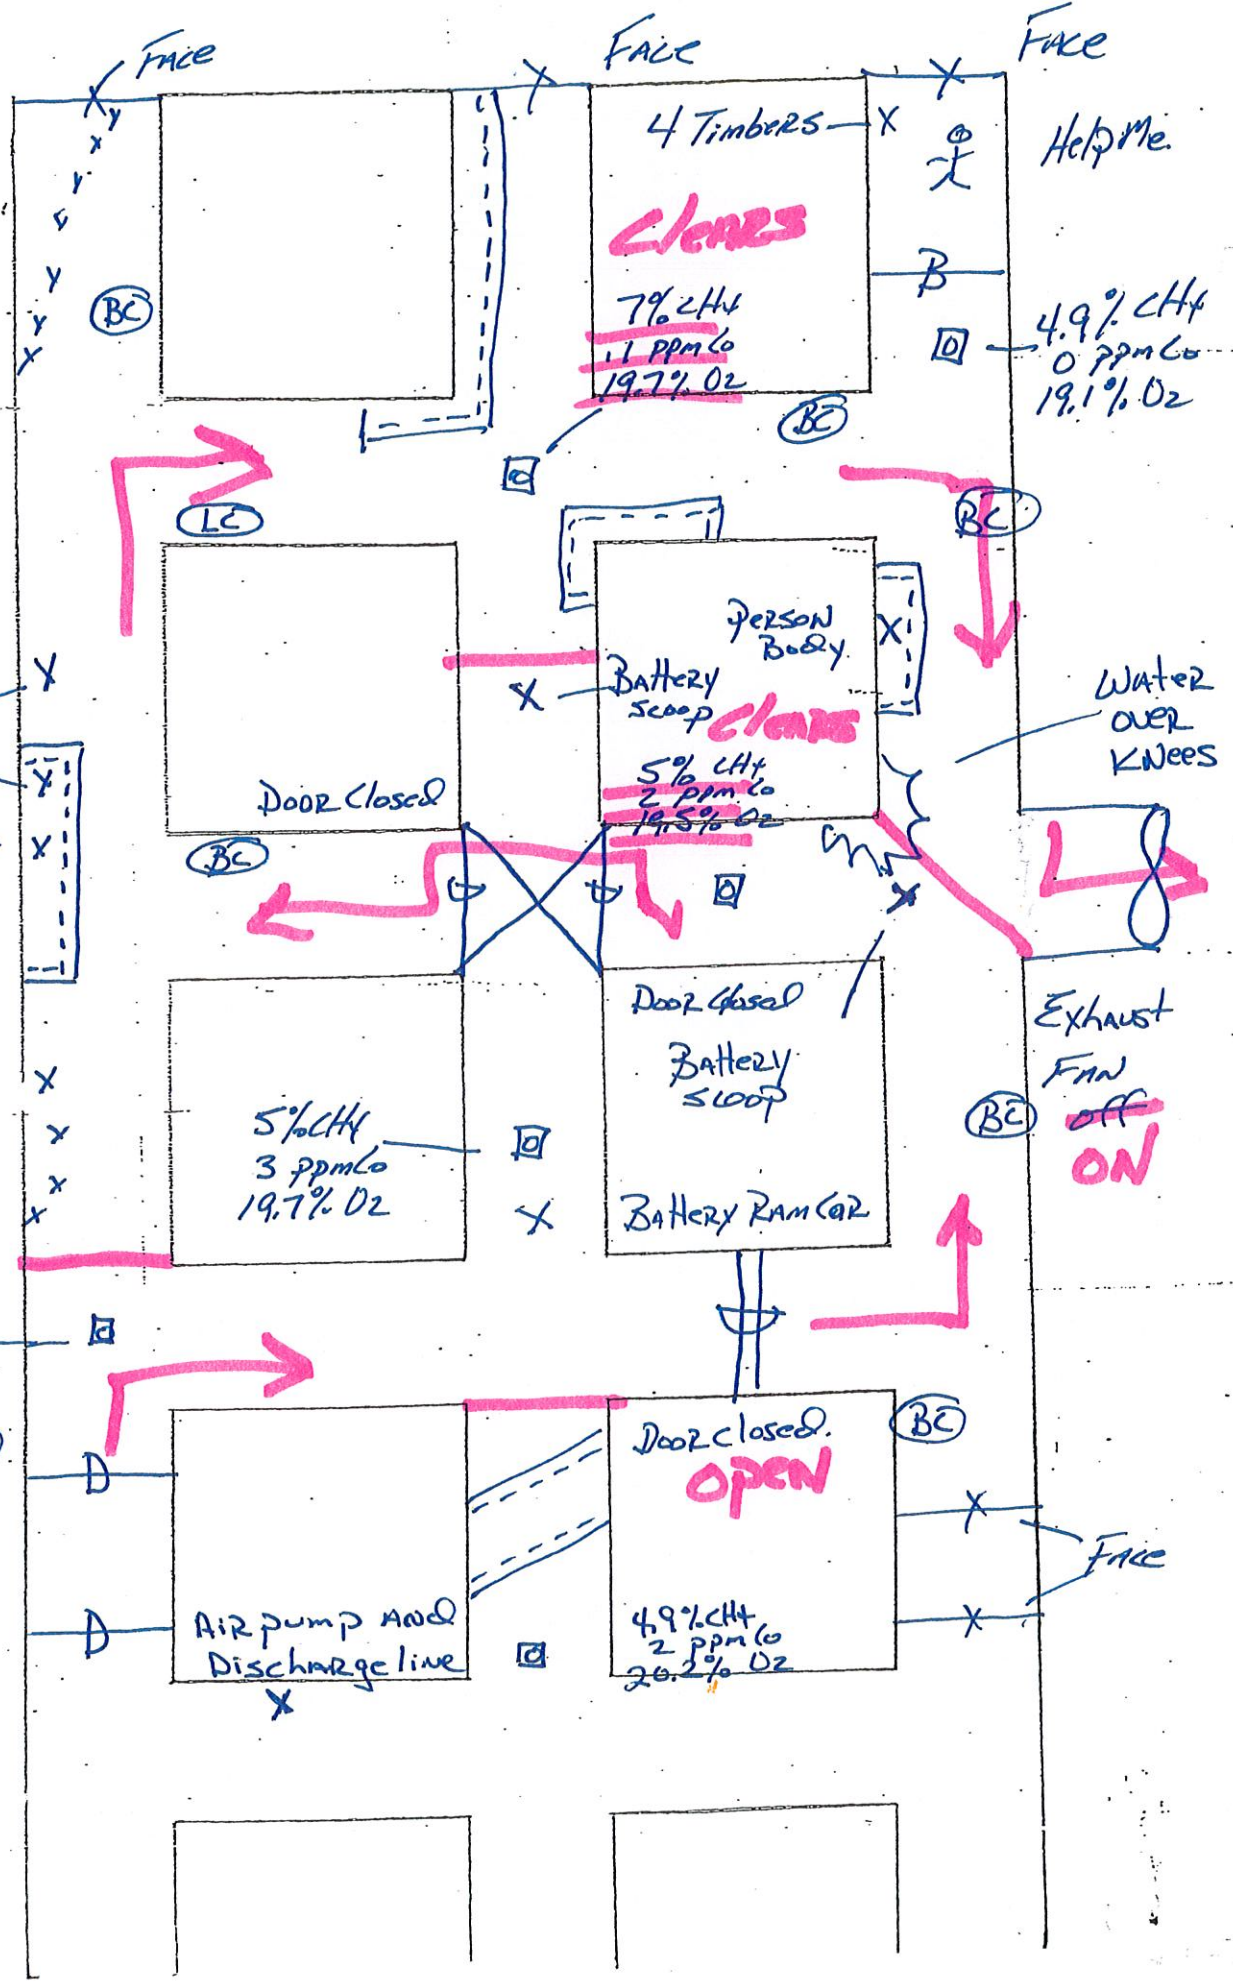 FACE
FACE
FACE
4 Timbers
X
Help Me.
Clears
B
BC
7% CH4
.1 ppm Co
19.7% O2
4.9% CH4
0 ppm Co
19.1% O2
BC
LC
BC
Person
Body
X
Battery
scoop
X
Clears
Water
over
Knees
5% CH4
2 ppm Co
19.5% O2
Door Closed
BC
Door Closed
Battery
scoop
Exhaust
Fan
off
ON
BC
5% CH4
3 ppm Co
19.7% O2
X
Battery Ram Car
D
Door closed.
OPEN
BC
Face
D
Air pump And
Discharge line
X
4.9% CH4
2 ppm Co
20.2% O2